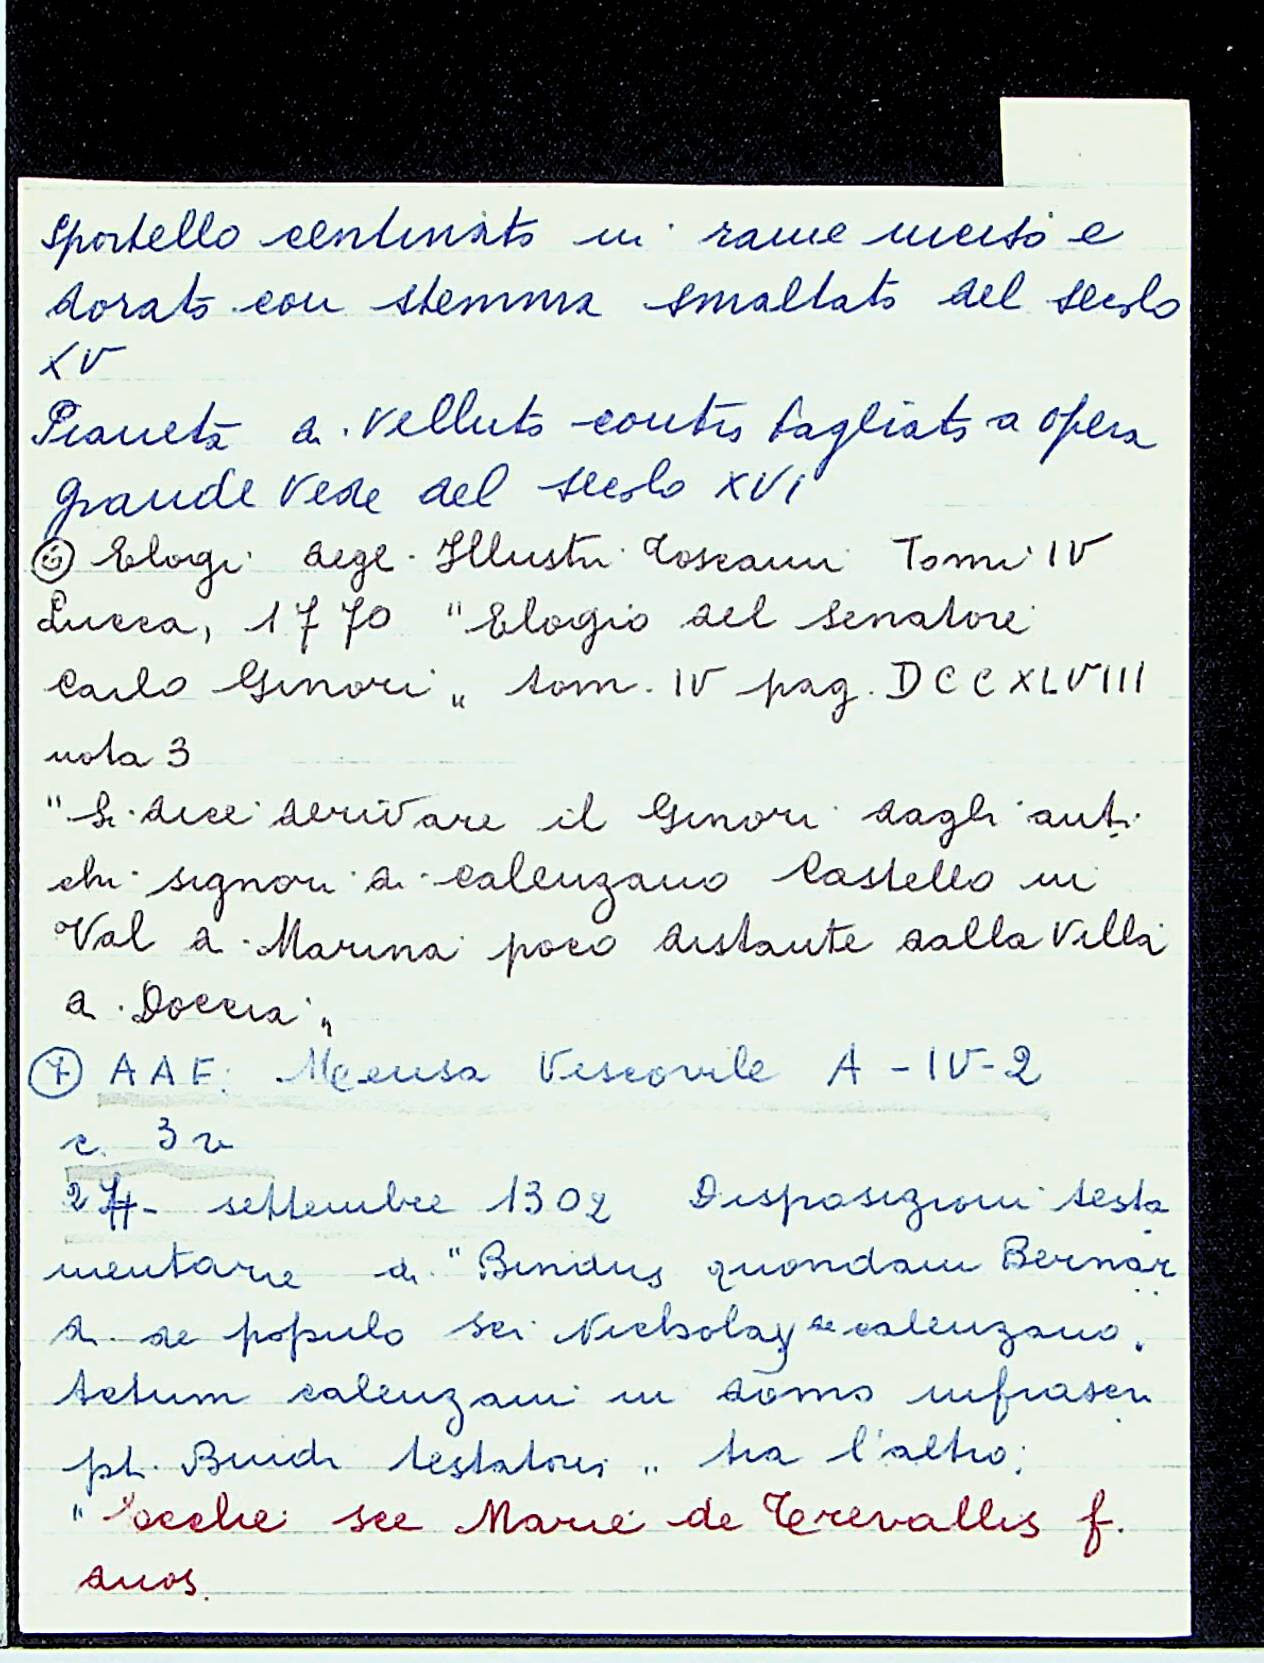 Sportello centinato in rame inciso e
dorato con stemma smaltato del secolo
XV
Pianeta di velluto contro tagliato a opera
grande vede del secolo XVI
⑥ Elogi degl. Illustri Toscani Tomi IV
Lucca, 1770 "Elogio del senatore
Carlo Ginori„ tom. IV pag. DCCXLVIII
nota 3
"Si dice derivare il Ginori dagli anti
chi signori di Calenzano Castello in
Val di Marina poco distante dalla Villa
di Doccia„
⑦ AAF. Mensa Vescovile A - IV - 2
c. 3v
27 - settembre 1302 Disposizioni testa
mentarie di "Bindus quondam Bernar
di de populo sci Nicholay de calenzano.
Actum calenzani in domo infrascri
pti Bindi testatoris„ tra l'altro:
"Ecclie sce Marie de Trevallis f.
duos.